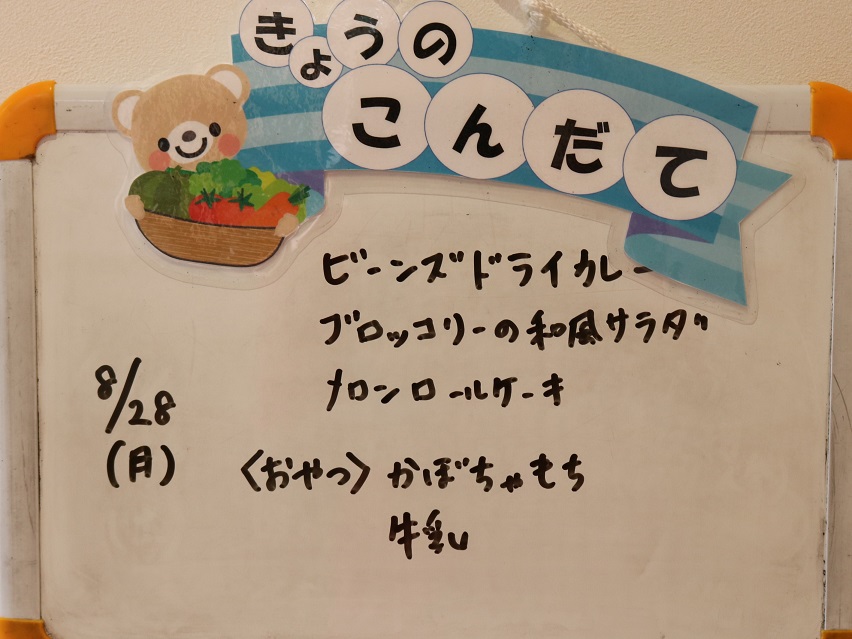 きょうの
こんだて
ビーンズドライカレー
ブロッコリーの和風サラダ
メロンロールケーキ
8/28
(月)
〈おやつ〉かぼちゃもち
牛乳